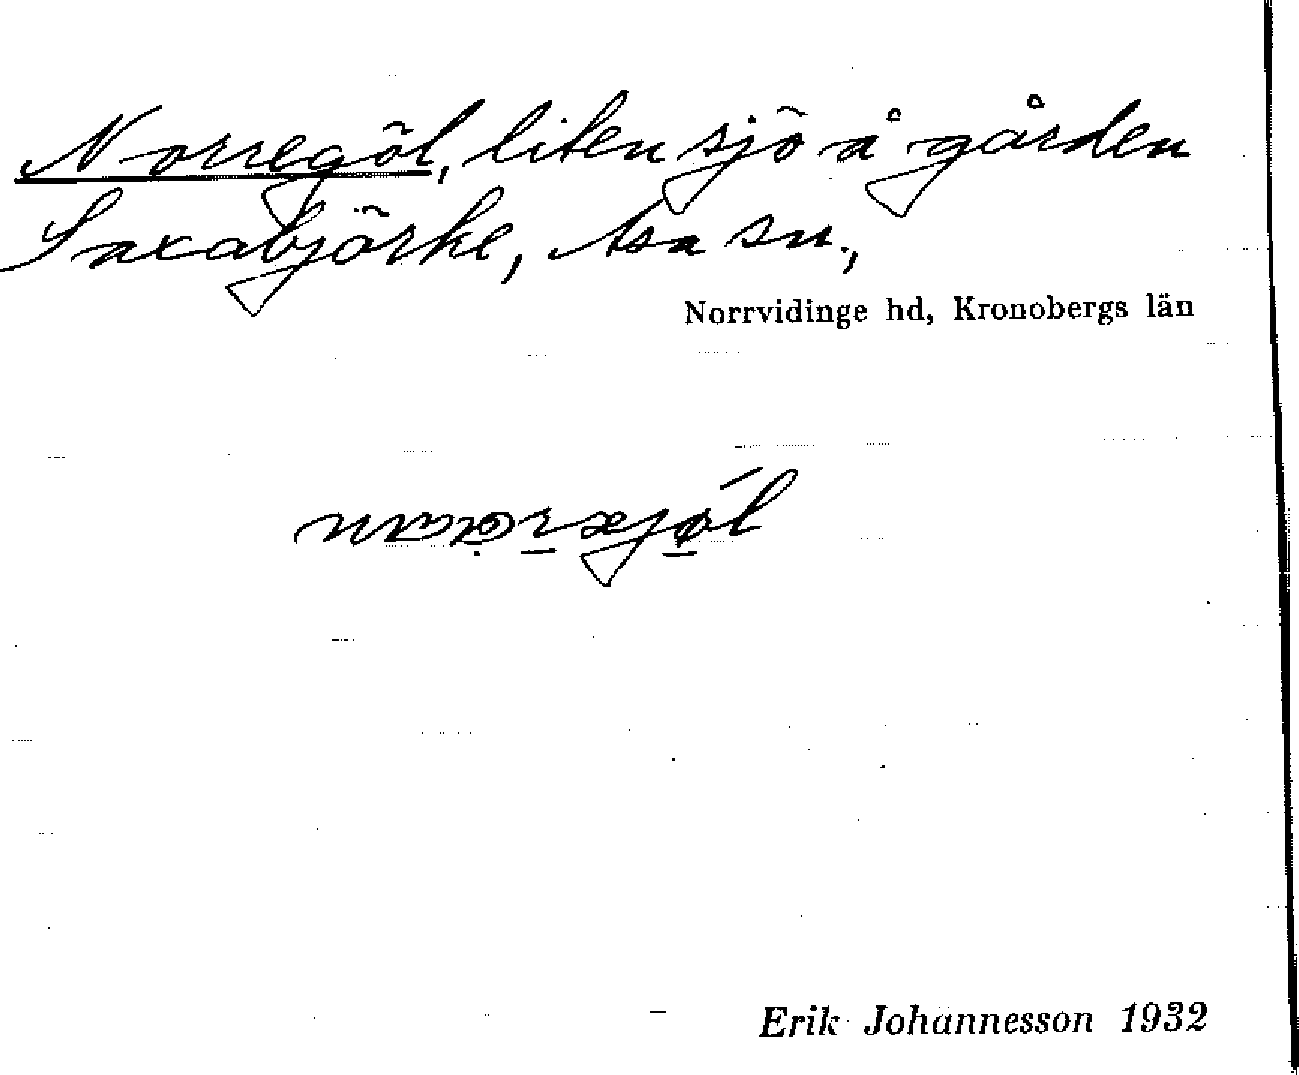 Norregöl, liten sjö å gården
Saxabjörke, Asa sn.,
Norrvidinge hd, Kronobergs län
Erik Johannesson 1932